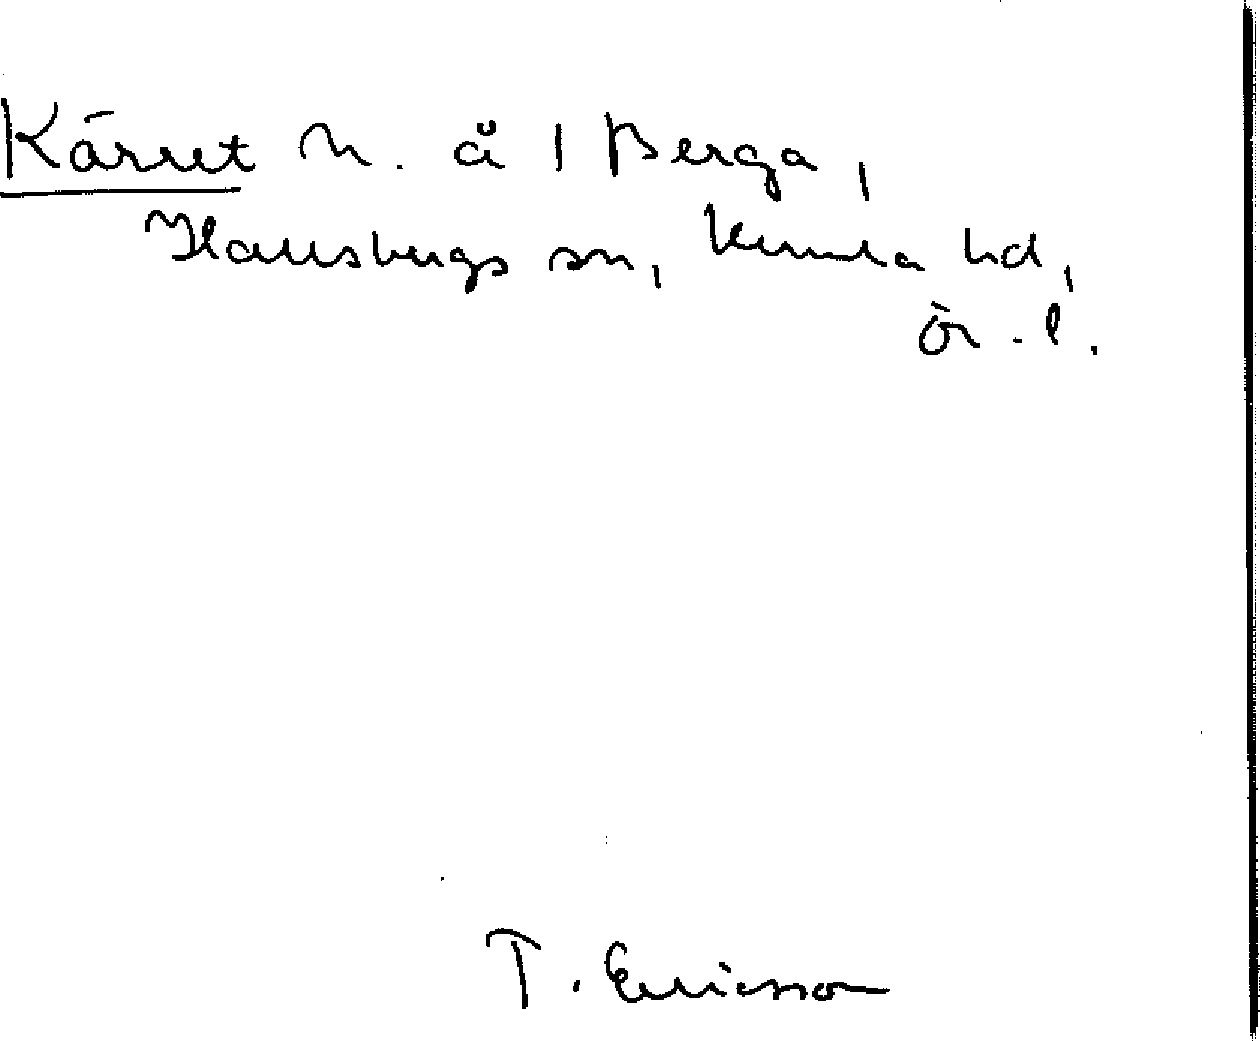 Kärret n. å 1 Berga,
Hallsbergs sn, Kumla hd,
Ör. l.
T. Ericsson